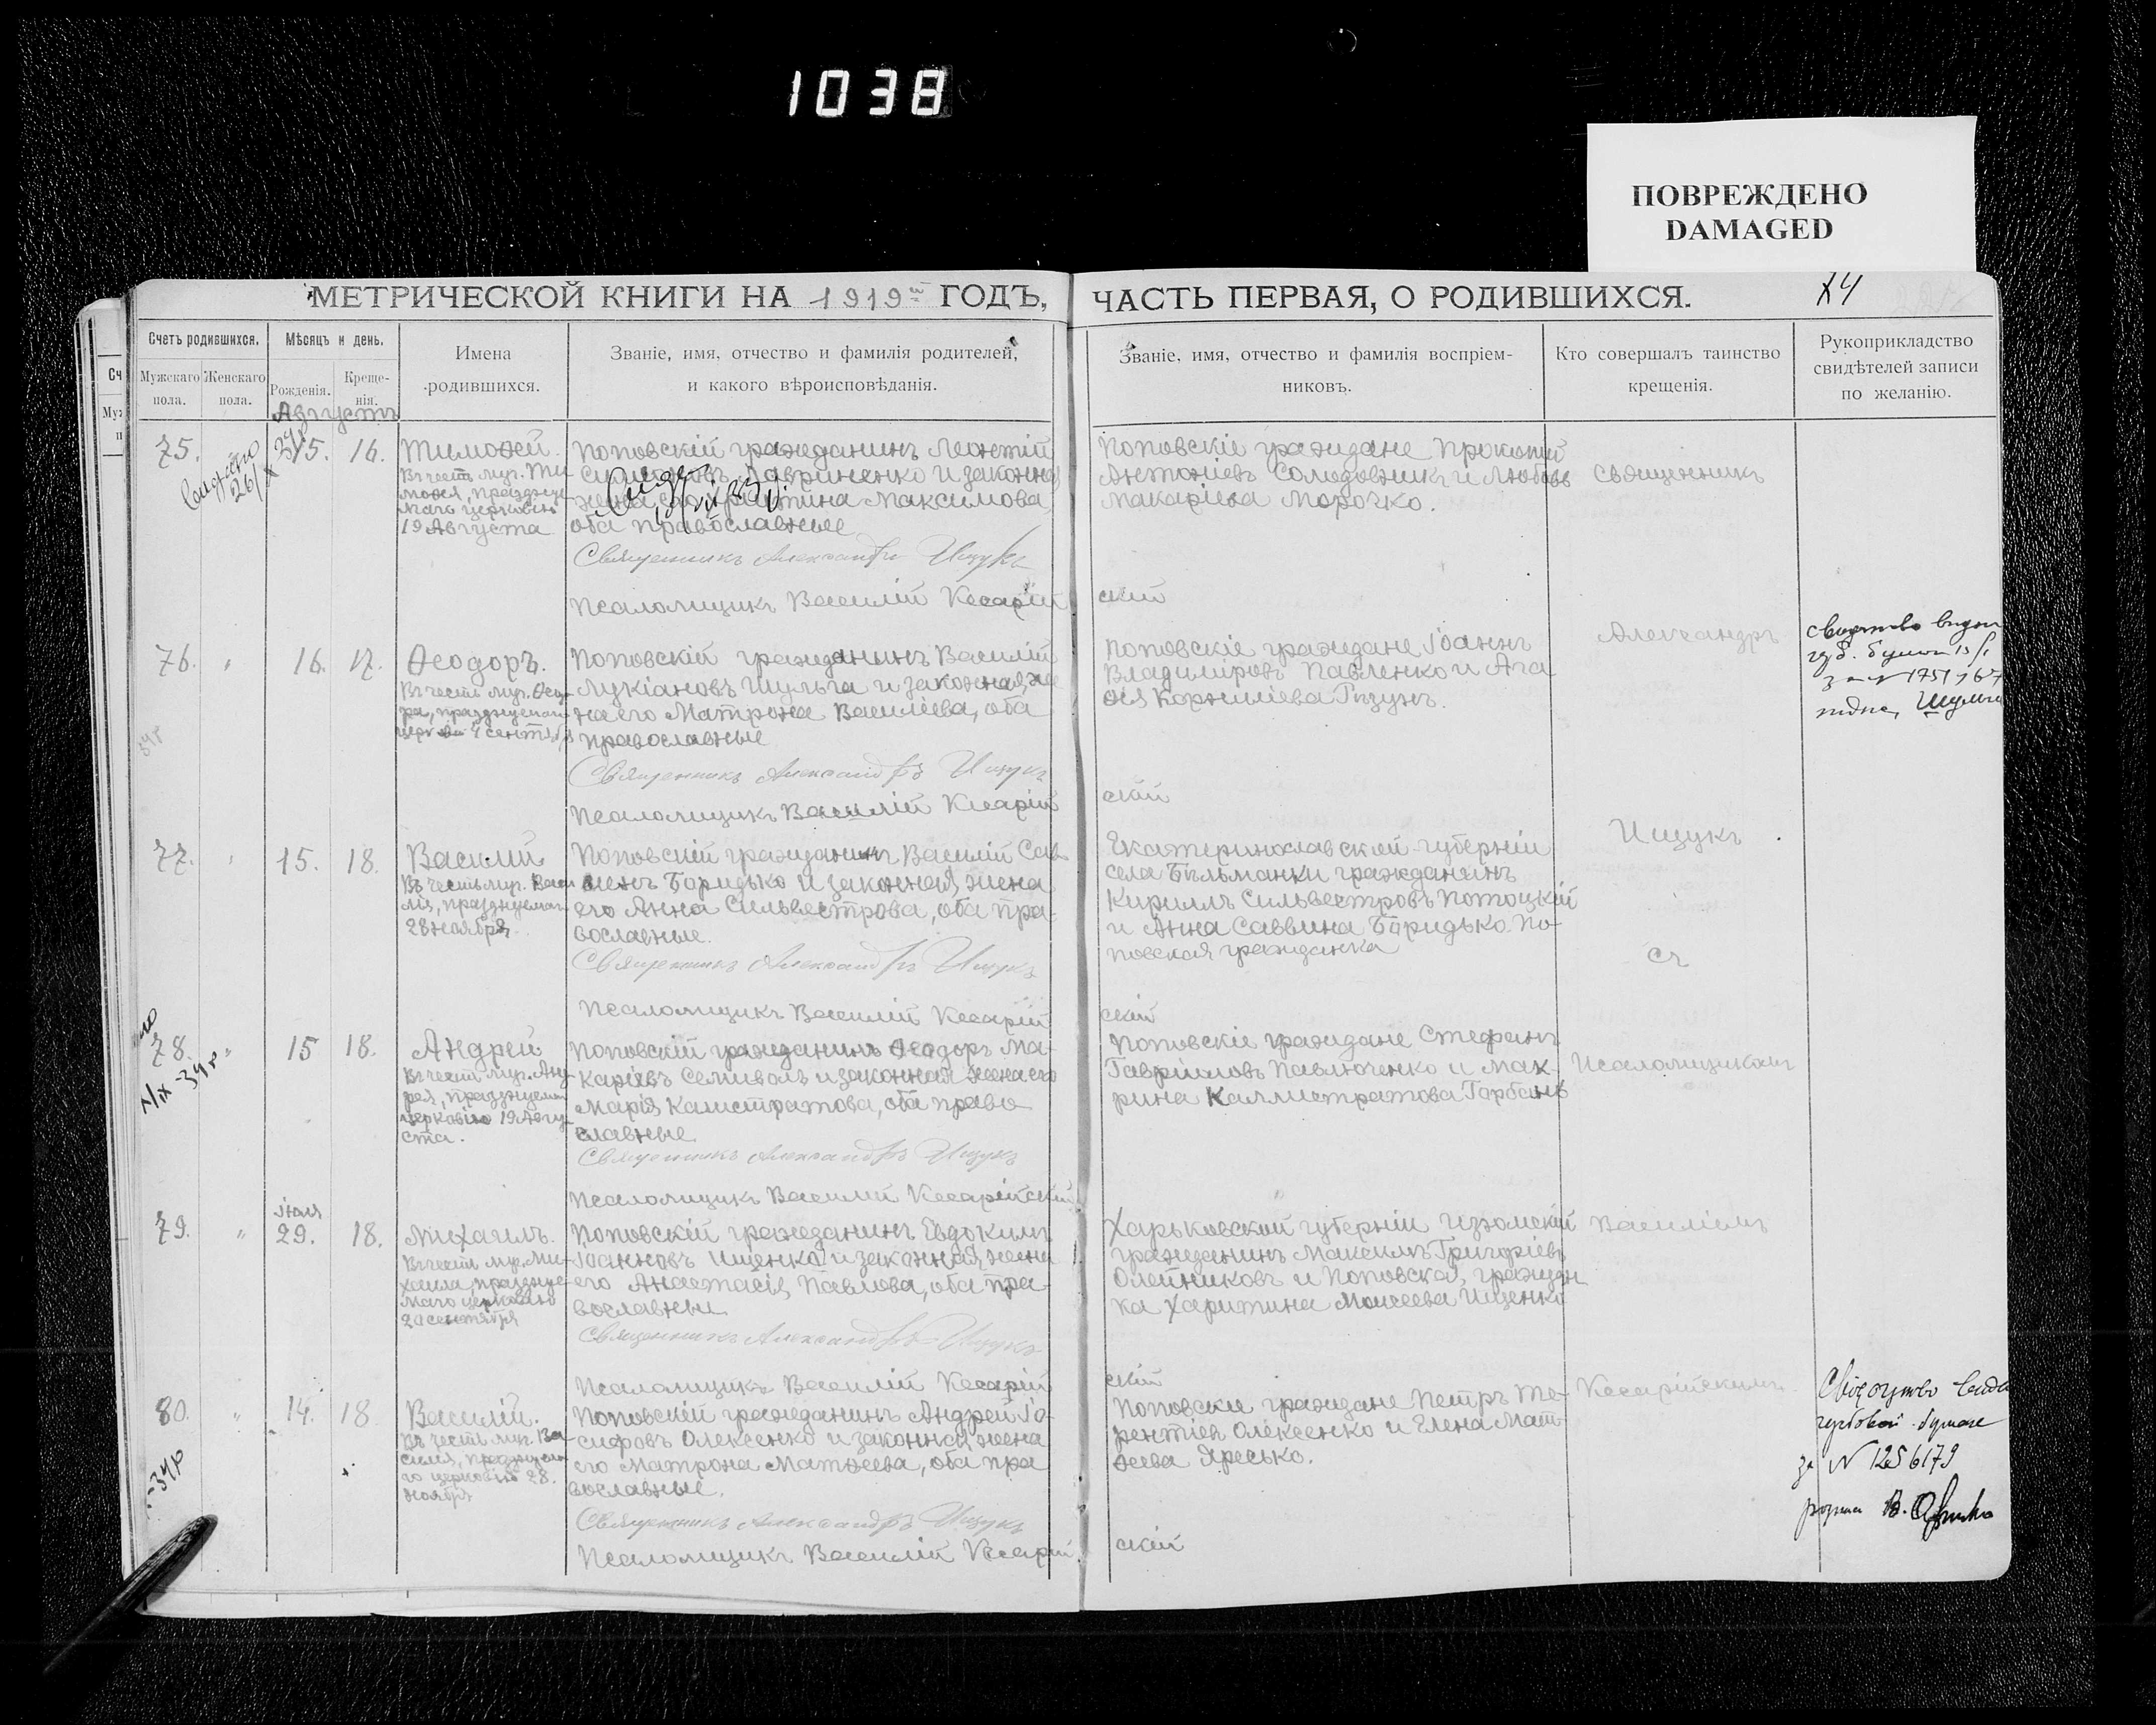 1038
ПОВРЕЖДЕНО
DAMAGED
МЕТРИЧЕСКОЙ КНИГИ НА 1919й ГОДЪ,
ЧАСТЬ ПЕРВАЯ, О РОДИВШИХСЯ.
Счетъ родившихся.
Мужскаго пола.
Женскаго пола.
Мѣсяцъ и день.
Рожденія.
Креще-
нія.
Имена
родившихся.
Званіе, имя, отчество и фамилія родителей,
и какого вѣроисповѣданія.
Званіе, имя, отчество и фамилія воспріем-
никовъ.
Кто совершалъ таинство
крещенія.
Рукоприкладство
свидѣтелей записи
по желанію.
Августъ
75. 15. 16. Тимоѳей.
Въ честь муч. Ти-
моѳея, празднуе-
маго церковію
19 Августа
Поповскій гражданинъ Леонтій
Лавриненко и законная
жена его Максимова,
оба православные
Священникъ Александръ Ищукъ
Псаломщикъ Василій Кесарій
скій
Поповскіе граждане Прокопій
Антоніевъ Солодовникъ и Любовь
Макаріева Морочко.
Священникъ
76. " 16. 17. Ѳеодоръ.
Въ честь муч. Ѳеодо-
ра, празднуемаго
церковію 4 сентября
Поповскій гражданинъ Василій
Лукіановъ Шульга и законная же
на его Матрона Василіева, оба
православные
Священникъ Александръ Ищукъ
Псаломщикъ Василій Кесарій
скій
Поповскіе граждане Іоаннъ
Владиміровъ Павленко и Ага
ѳія Корниліева Гизунъ.
Александръ
77. " 15. 18. Василій
Въ честь муч. Васи
лія, празднуемаго
28 ноября
Поповскій гражданинъ Василій Сав
винъ Боридько и законная жена
его Анна Сильвестрова, оба пра-
вославные.
Священникъ Александръ Ищукъ
Псаломщикъ Василій Кесарій
скій
Екатеринославской губерніи
села Бѣльманки гражданинъ
Кириллъ Сильвестровъ Потоцкій
и Анна Саввина Боридько По-
повская гражданка
Ищукъ
Съ
78. " 15 18. Андрей
Въ честь муч. Анд-
рея, празднуемаго
церковію 19 Авгу-
ста.
Поповскій гражданинъ Ѳеодоръ Ма-
каріевъ Семиволъ и законная жена его
Марія Калистратова, оба право
славные
Священникъ Александръ Ищукъ
Псаломщикъ Василій Кесарійскій
Поповскіе граждане Стефанъ
Гавріиловъ Павлюченко и Мак-
рина Каллистратова Горбань
Псаломщикомъ
79. " 29. 18. Михаилъ.
Въ честь муч. Ми-
хаила, праздную-
маго церковію
20 сентября
Поповскій гражданинъ Евдокимъ
Іоанновъ Ищенко и законная жена
его Анастасія Павлова, оба пра
вославные
Священникъ Александръ Ищукъ
Псаломщикъ Василій Кесарій
скій
Харьковской губерніи Изюмскій
гражданинъ Максимъ Григоріевъ
Олейниковъ и Поповская граждан
ка Харитина Моисеева Ищенко
Василіемъ
80. " 14. 18 Василій.
Въ честь муч. Ва-
силія, празднуема-
го церковію 28.
ноября
Поповскій гражданинъ Андрей Іо-
сифовъ Олексенко и законная жена
его Матрона Матѳеева, оба пра
вославные.
Священникъ Александръ Ищукъ
Псаломщикъ Василій Кесарій
скій
Поповскіе граждане Петръ Те-
рентіевъ Олексенко и Елена Мат-
ѳеева Яресько.
Кесарійскимъ
за N 1256179